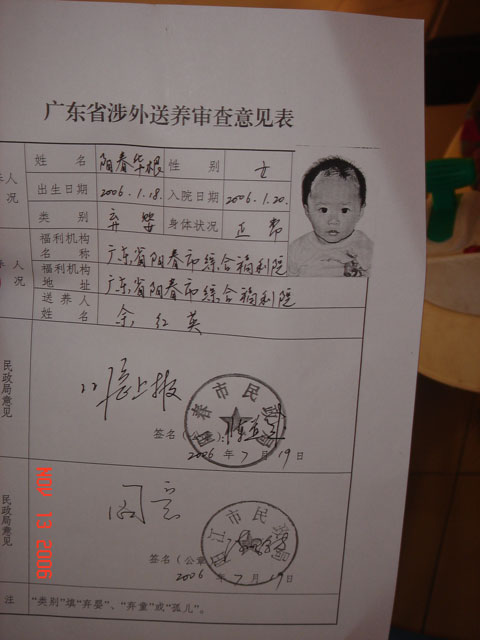 广东省涉外送养审查意见表
养人
况
姓 名 阳春华根 性 别 女
出生日期 2006.1.18. 入院日期 2006.1.20.
类 别 弃婴 身体状况 正常
养人
况
福利机构
名 称 广东省阳春市综合福利院
福利机构
地 址 广东省阳春市综合福利院
送养人
姓 名 余红英
民政局意见
同意上报
春市民政
签名(公章):
2006年7月19日
民政局意见
同意
江市民
签名(公章
2006年7月19日
注 “类别”填“弃婴”、“弃童”或“孤儿”。
NOV 13 2006